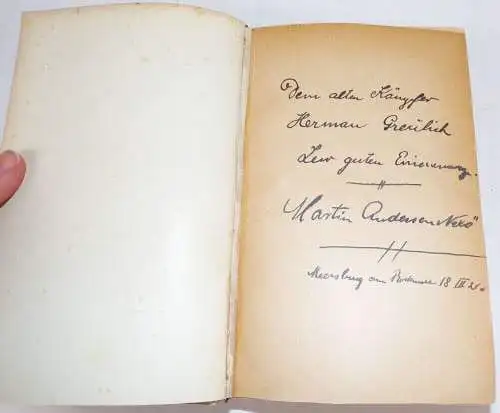 Dem alten Kämpfer
Herman Greulich
Zur guten Erinerung.
Martin Andersen Nexö
Meersburg am Bodensee 18 III 24